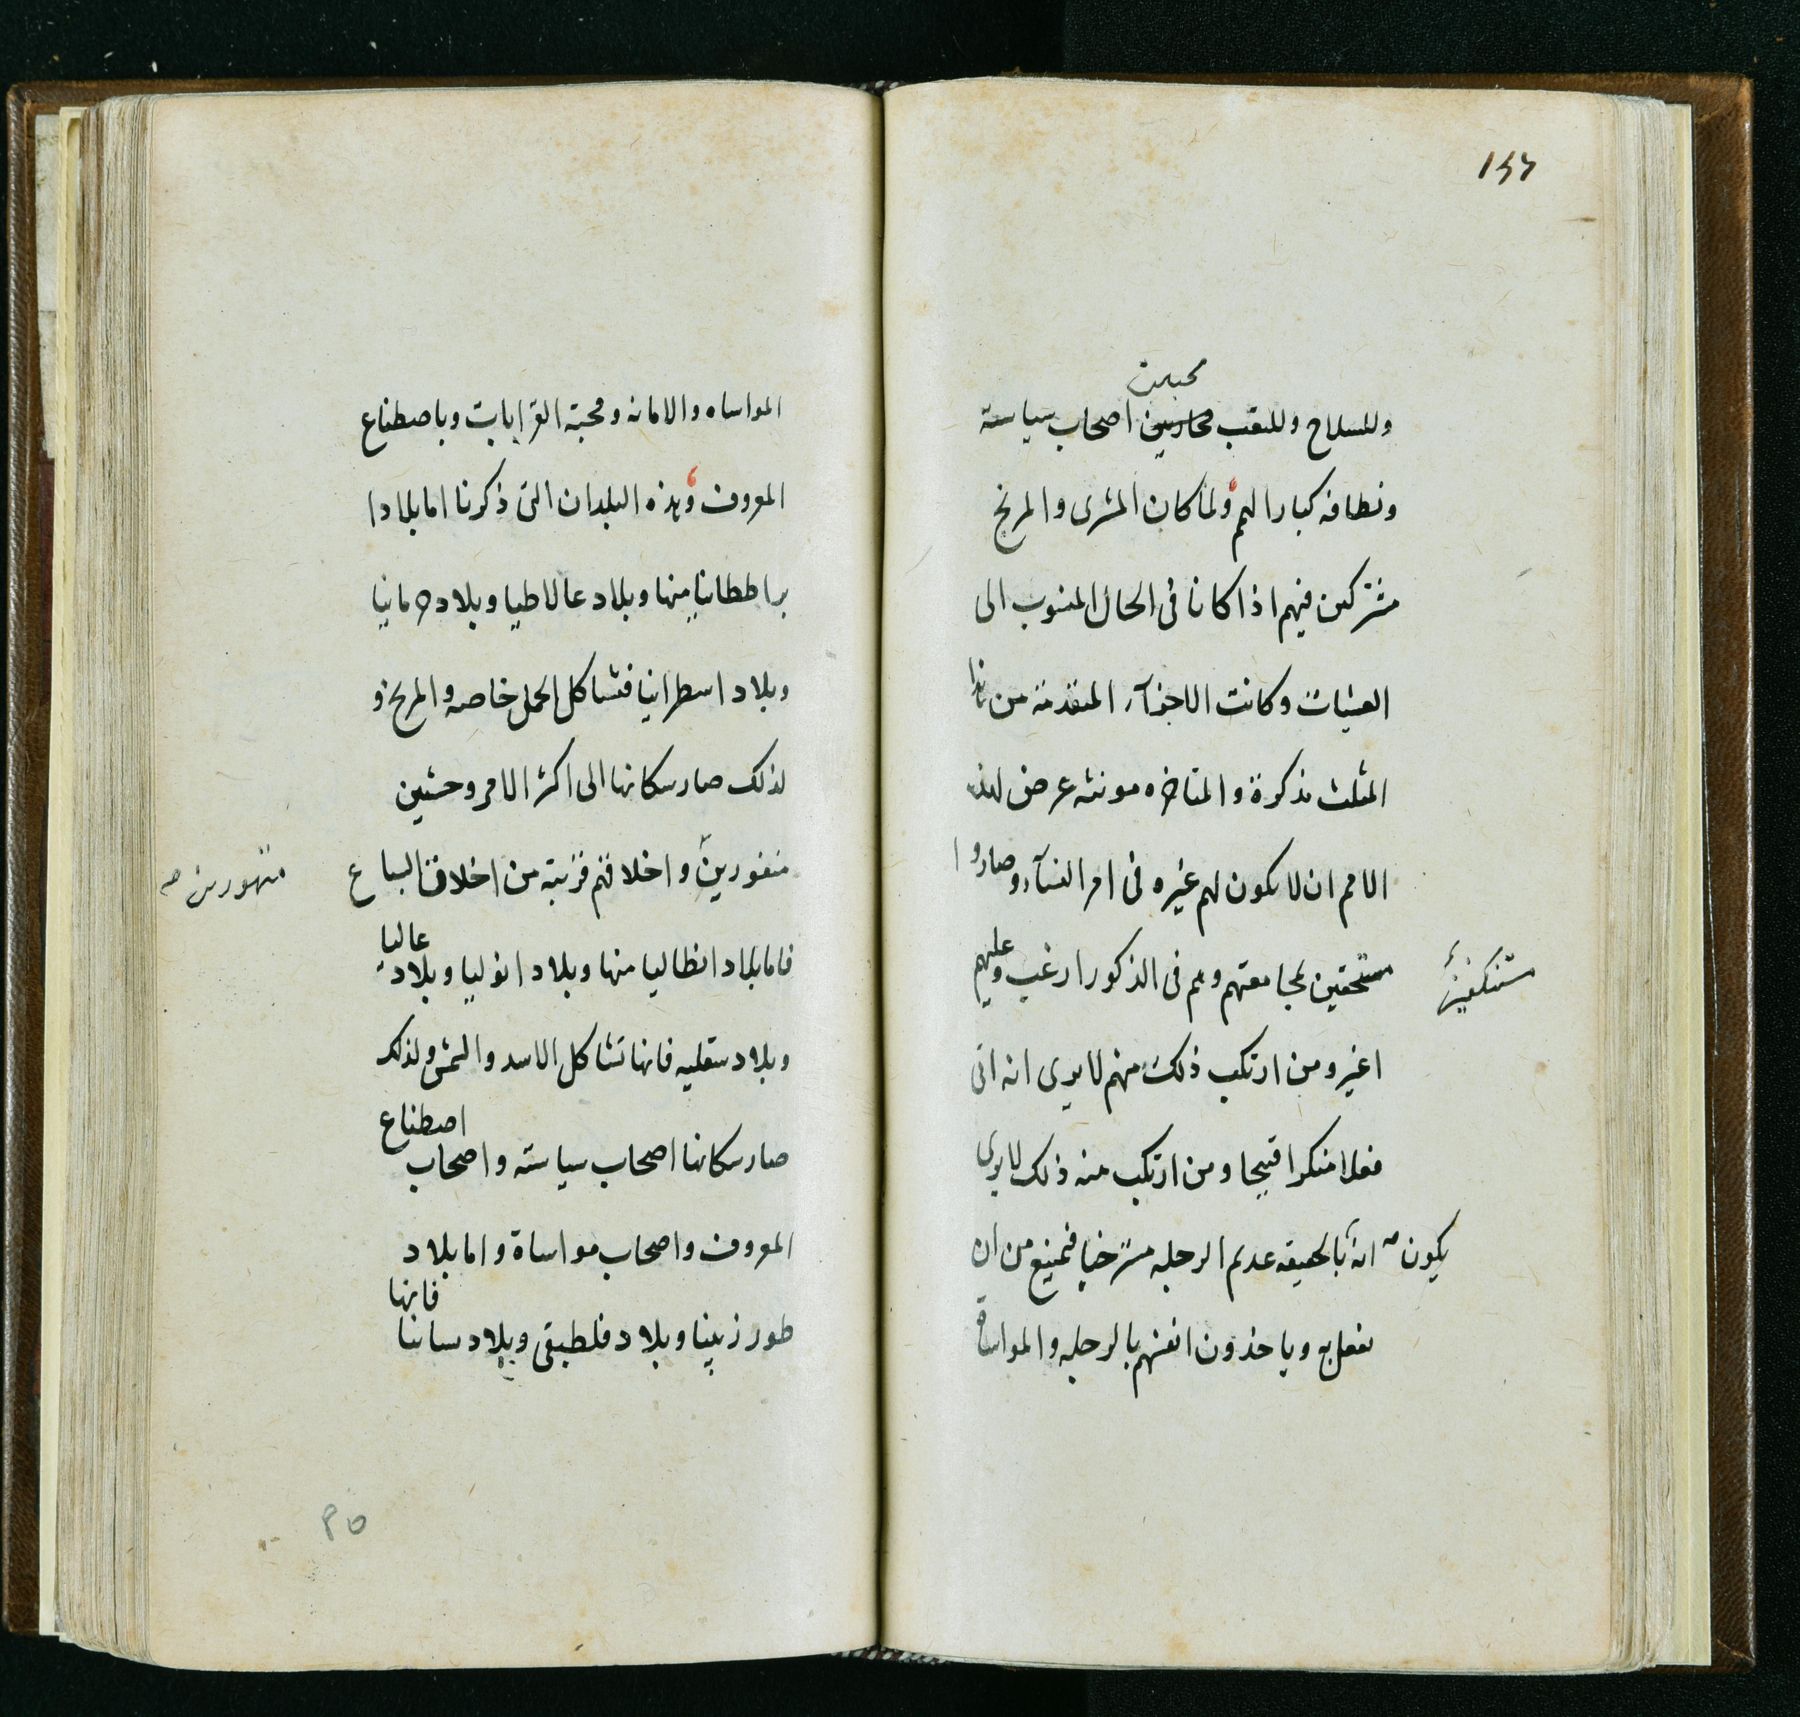 ١٤٦
محبين
وللسلاح وللتعب محاربين اصحاب سياسة
ونظافه كبار الهمم ولما كان المشترى والمريخ
مشتركين فيهم اذا كانا فى الحال المنسوب الى
العشيات وكانت الاجزآء المتقدمة من هذا
المثلث مذكرة والمتاخره مونثه عرض لهذه
الامم ان لا يكون لهم غيره فى امر النسآء وصاروا
مستحقين لمجامعتهم وهم فى الذكور ارغب وعليهم
مستنكفين
اغير ومن ارتكب ذلك منهم لا يرى انه اتى
فعلا منكرا قبيحا ومن ارتكب منه ذلك لا يرى
يكون انه بالحقيقه عديم الرجله مسترخيا فيمتنع من ان
يفعل به وياخذون انفسهم بالرجله والمواساة
المواساه والامانه ومحبة القرابات وباصطناع
المعروف وهذه البلدان التى ذكرنا اما بلاد ا
براططانيا منها وبلاد عالاطيا وبلاد جرمانيا
وبلاد اسطرانيا فتشاكل الحمل خاصه والمريخ و
لذلك صار سكانها الى اكثر الامر وحشيين
منفورين واخلاقهم قريبة من اخلاق السباع
متهورين صح
فاما بلاد انطاليا منها وبلاد ابوليا وبلاد
عاليا
وبلاد سقليه فانها تشاكل الاسد والشمس ولذلك
صار سكانها اصحاب سياسته واصحاب
اصطناع
المعروف واصحاب مواساة واما بلاد
طورزينيا وبلاد فلطيقى وبلاد سبانيا
فانها
٢٥